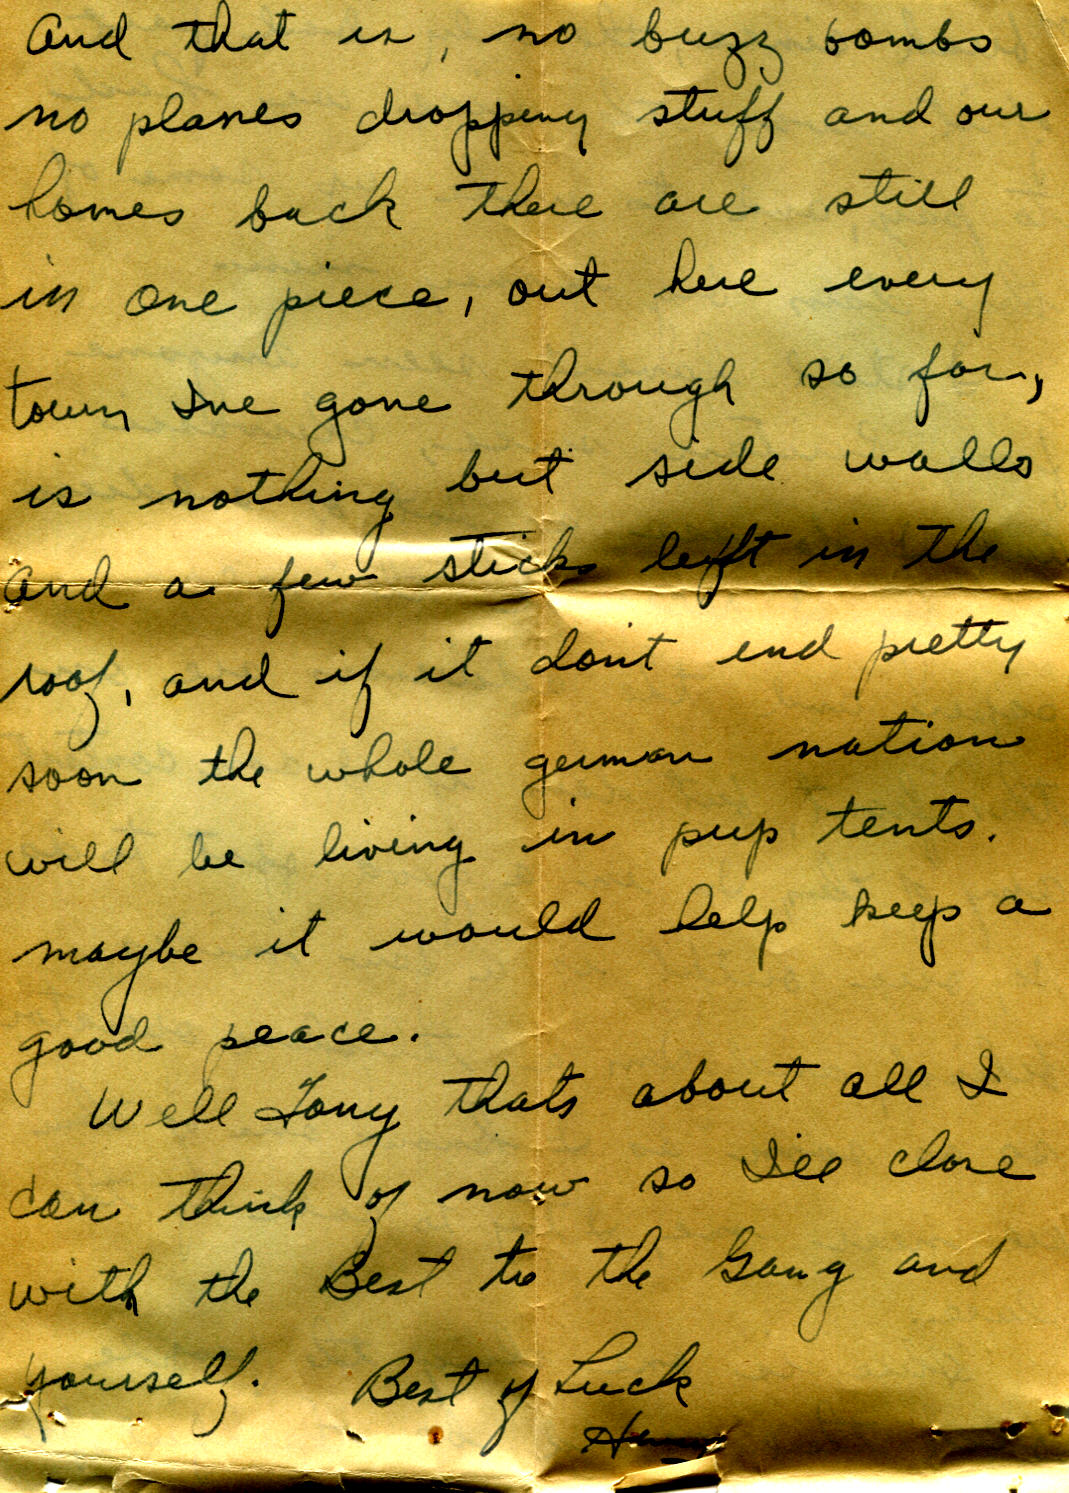 And that is, no buzz bombs
no planes dropping stuff and our
homes back there are still
in one piece, out here every
town I've gone through so far,
is nothing but side walls
and a few sticks left in the
roof, and if it don't end pretty
soon the whole german nation
will be living in pup tents.
maybe it would help keep a
good peace.
Well Tony thats about all I
can think of now so I'll close
with the Best to the Gang and
yourself. Best of Luck